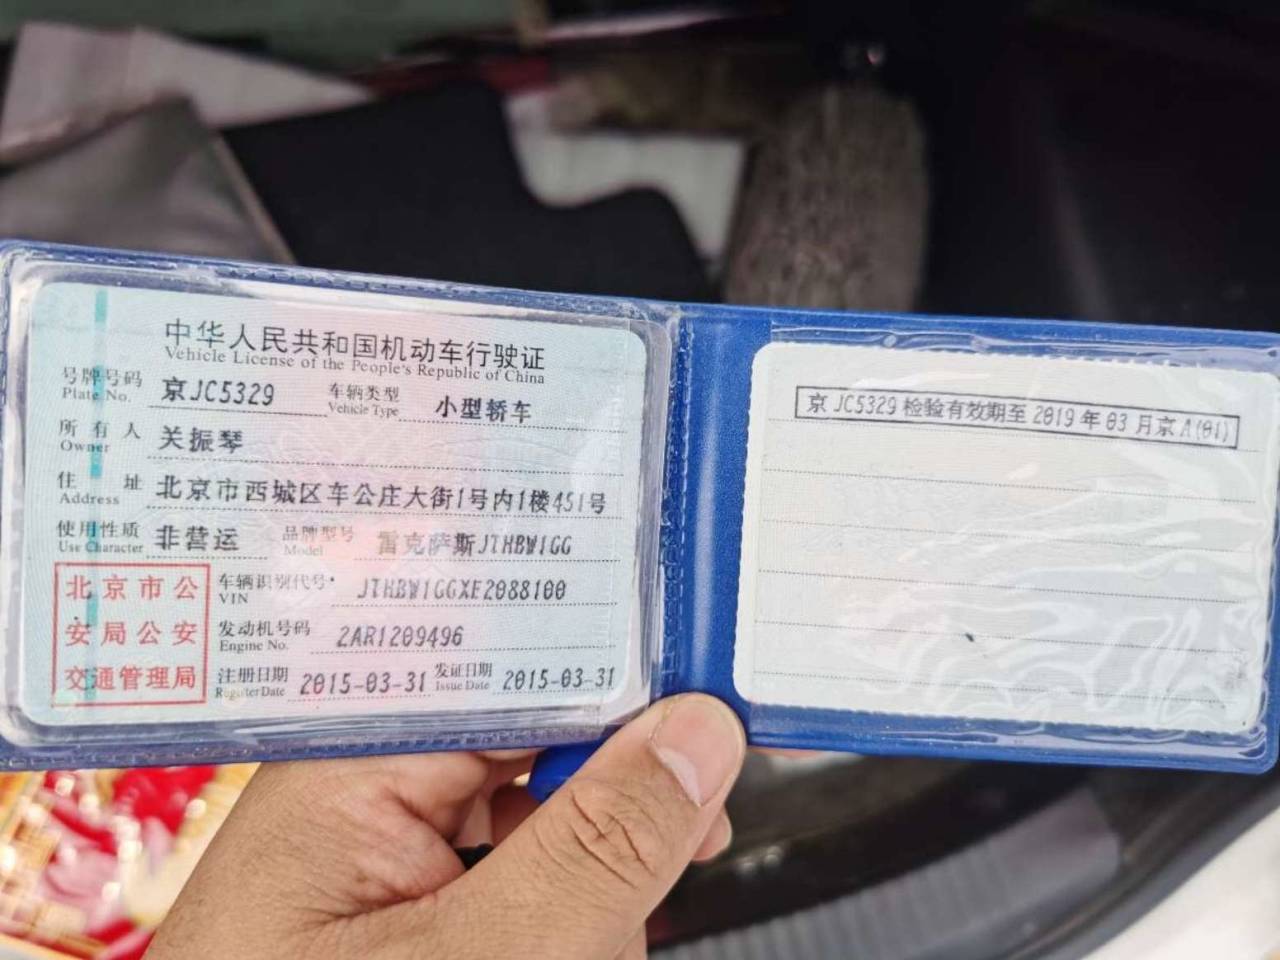 中华人民共和国机动车行驶证
Vehicle License of the People's Republic of China
号牌号码 京JC5329 车辆类型 小型轿车
Plate No. Vehicle Type
所有人 关振琴
Owner
住址 北京市西城区车公庄大街1号内1楼451号
Address
使用性质 非营运 品牌型号 雷克萨斯JTHBW1GG
Use Character Model
北京市公
安局公安
交通管理局
车辆识别代号 JTHBW1GGXE2088100
VIN
发动机号码 2AR1209496
Engine No.
注册日期 2015-03-31 发证日期 2015-03-31
Register Date Issue Date
京JC5329检验有效期至2019年03月京A(01)